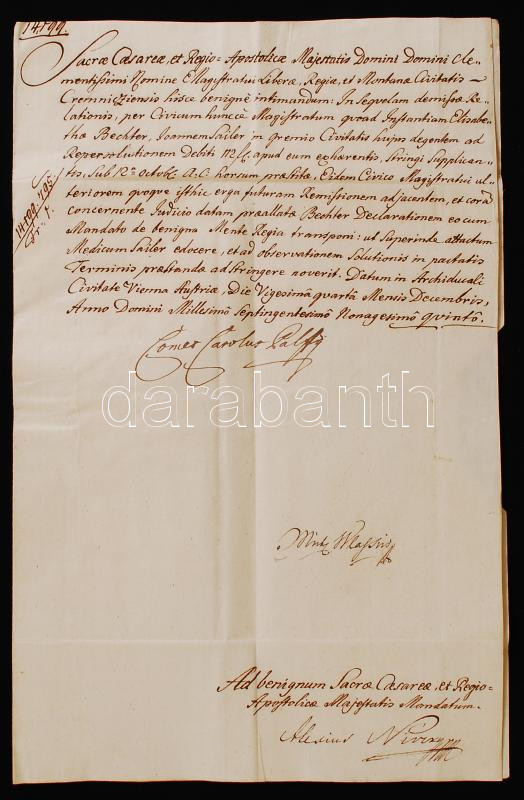 14,199.
Sacræ Cæsareæ, et Regio-Apostolicæ Majestatis Domini Domini Cle-
mentissimi Nomine Magistratui Liberæ, Regiæ, et Montanæ Civitatis
Cremnicziensis hisce benignè intimandum: In Sequelam demissæ Re-
lationis, per Civicum huncce Magistratum quoad Instantiam Elisabe-
thæ Bechter, Joannem Sailer in gremio Civitatis hujus degentem ad
Repersolutionem Debiti 112 fl. apud eum exhærentis, stringi Supplican-
tis, Sub 12a Octobr. A. C. horsum præstitæ, Eidem Civico Magistratui ul-
teriorem quoque isthic erga futuram Remissionem adjacentem, et corā
concernente Judicio datam præallatæ Bechter Declarationem eo cum
Mandato de benigna Mente Regia transponi: ut Superinde attactum
Medicum Sailer edocere, et ad observationem Solutionis in pactatis
Terminis præstandæ adstringere noverit. Datum in Archiducali
Civitate Vienna Austriæ, Die Vigesimâ quartâ Mensis Decembris,
Anno Domini Millesimô Septingentesimô Nonagesimô quintô.
14,199. 1795.
Comes Carolus Palffy
darabanth
Ad benignum Sacræ Cæsareæ, et Regio-
Apostolicæ Majestatis Mandatum.
Alexius